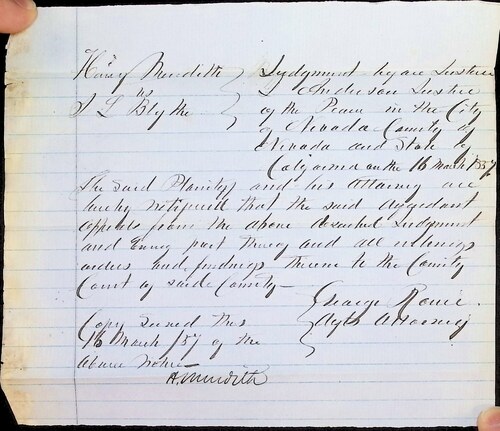 Henry Meredith
vs
S L Blythe
Judgment before Justice
Anderson Justice
of the Peace in the City
of Nevada County of
Nevada and State of
California on the 16 March 1857
The said Plaintiff and his Attorney are
hereby notified that the said defendant
appeals from the above described Judgment
and Every part thereof and all rulings
orders and findings therein to the County
Court of said County
George Rowe
Dfts Attorney
Copy served this
16 March /57 of the
above notice
H. Meredith